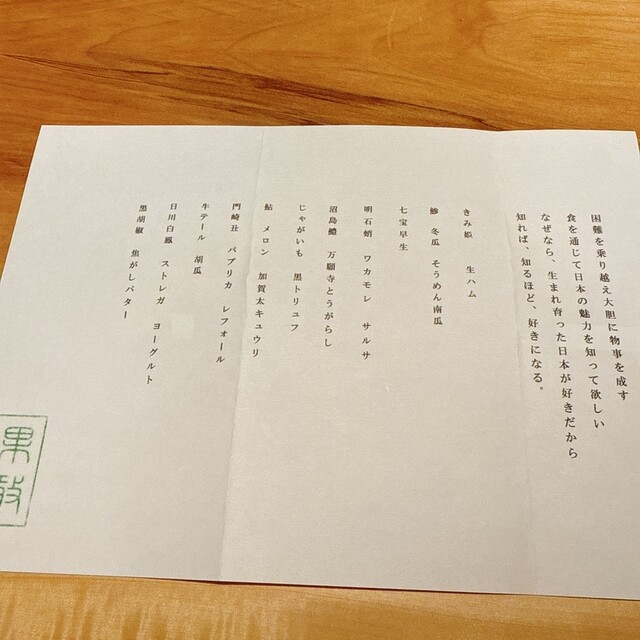 困難を乗り越え大胆に物事を成す
食を通じて日本の魅力を知って欲しい
なぜなら、生まれ育った日本が好きだから
知れば、知るほど、好きになる。
きみ姫　生ハム
鯵　冬瓜　そうめん南瓜
七宝早生
明石蛸　ワカモレ　サルサ
沼島鱧　万願寺とうがらし
じゃがいも　黒トリュフ
鮎　メロン　加賀太キュウリ
門崎丑　パプリカ　レフォール
牛テール　胡瓜
日川白鳳　ストレガ　ヨーグルト
黒胡椒　焦がしバター
果敢